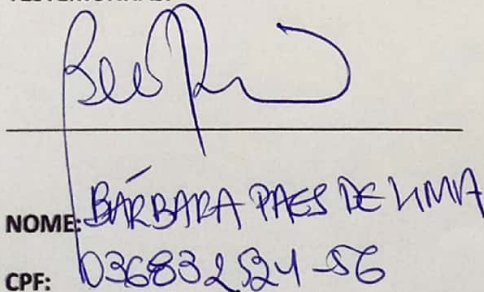 NOME: BÁRBARA PAES DE LIMA
CPF: 036832521-56